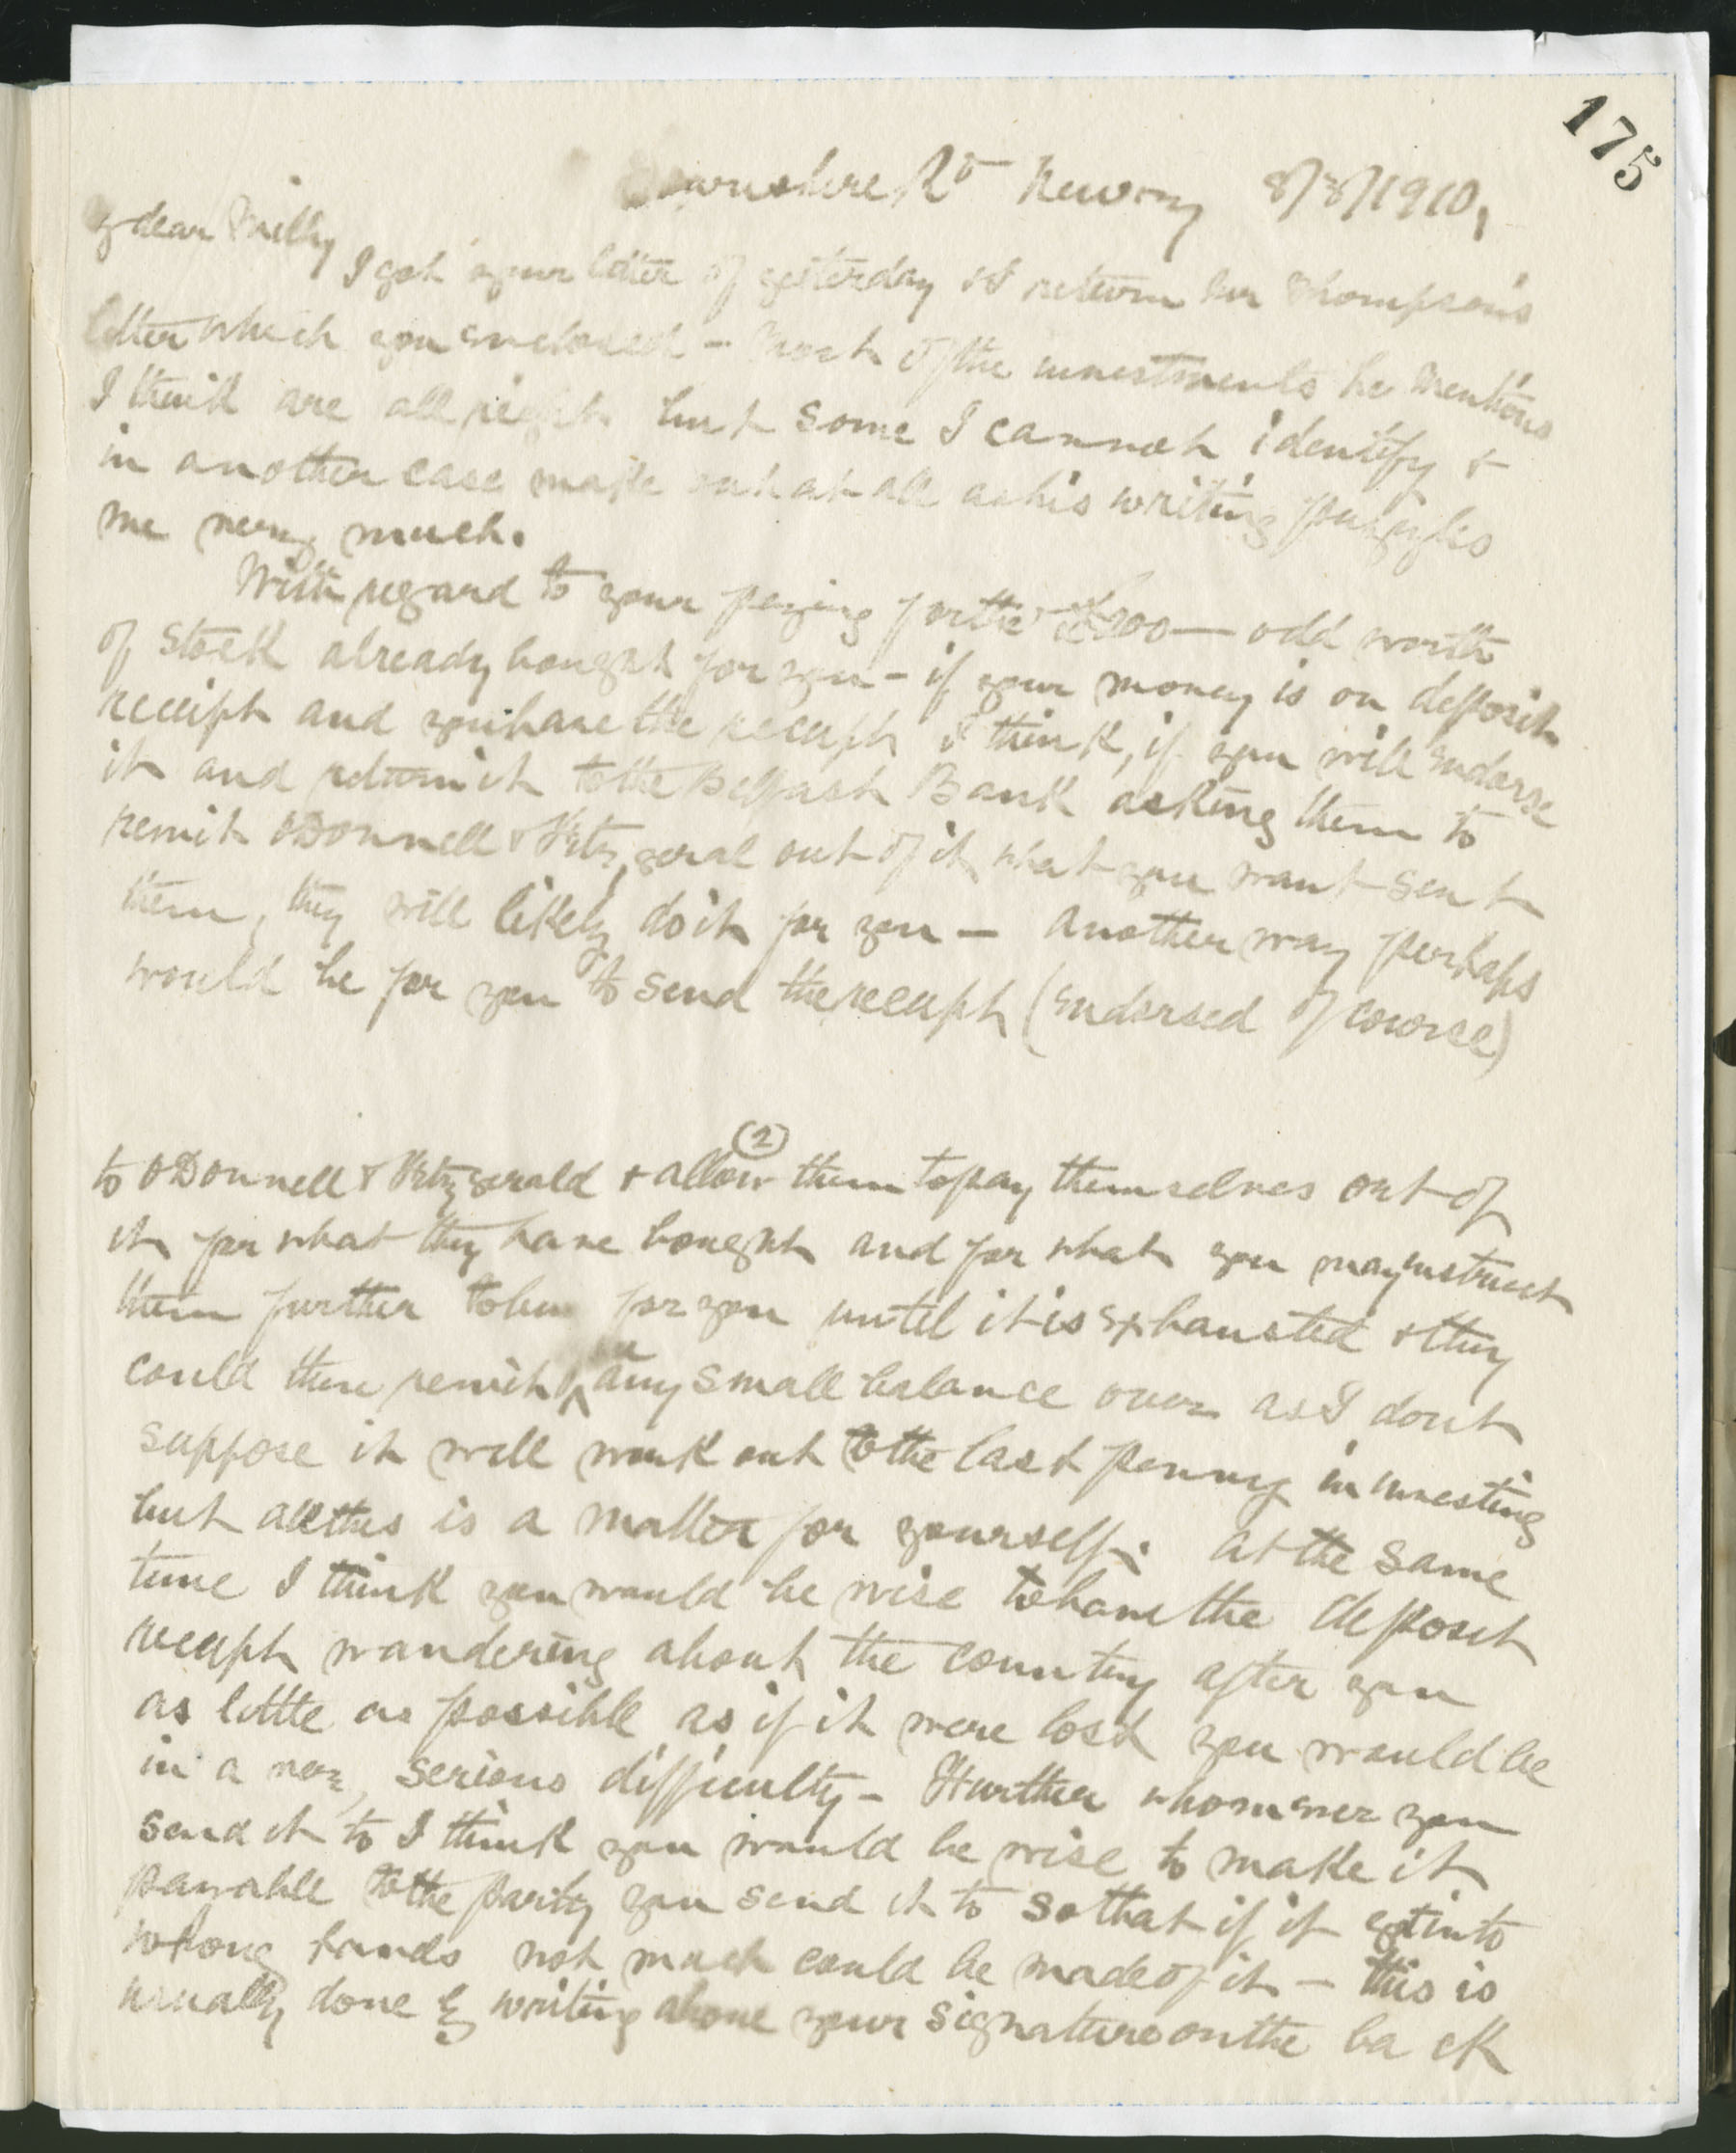 175
Downshire Rd Newry 8/8/1910,
y dear Milly
I got your letter of yesterday & I return Mr Thompson's
letter which you enclosed - Most of the investments he mentions
I think are all right but some I cannot identify &
in another case make out at all as his writing puzzles
me very much.
With regard to your paying for the £200 — odd worth
of stock already bought for you - if your money is on deposit
receipt and you have the receipt I think, if you will endorse
it and return it to the Belfast Bank asking them to
remit O'Donnell & Fitzgeral out of it what you want sent
them, they will likely do it for you — another way perhaps
would be for you to send the receipt (endorsed of course)
(2)
to O'Donnell & Fitzgerald & allow them to pay themselves out of
it for what they have bought and for what you may instruct
them further to buy for you until it is exhausted & they
could then remit any small balance over as I dont
suppose it will work out to the last penny in investing
but all this is a matter for yourself. At the same
time I think you would be wise to have the deposit
receipt wandering about the country after you
as little as possible as if it were lost you would be
in a very serious difficulty - Further whomever you
send it to I think you would be wise to make it
payable to the party you send it to so that if it got into
wrong hands not much could be made of it — this is
usually done by writing above your signature on the back